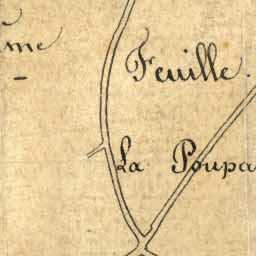 me
Feuille.
La Poupa